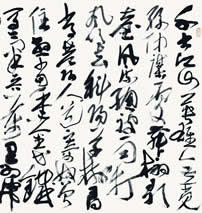 千古江山英雄无觅
孙仲谋处舞榭歌
台风流总被雨打
风吹去斜阳草树寻
常巷陌人道寄奴曾
住想当年金戈铁
马气吞万里如虎